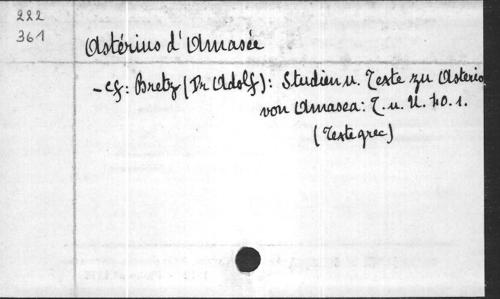 222
361
Astérius d'Amasée
- cf: Bretz (Dr Adolf): Studien u. Texte zu Asterio
von Amasea: T. u. U. 40. 1.
(Texte grec)